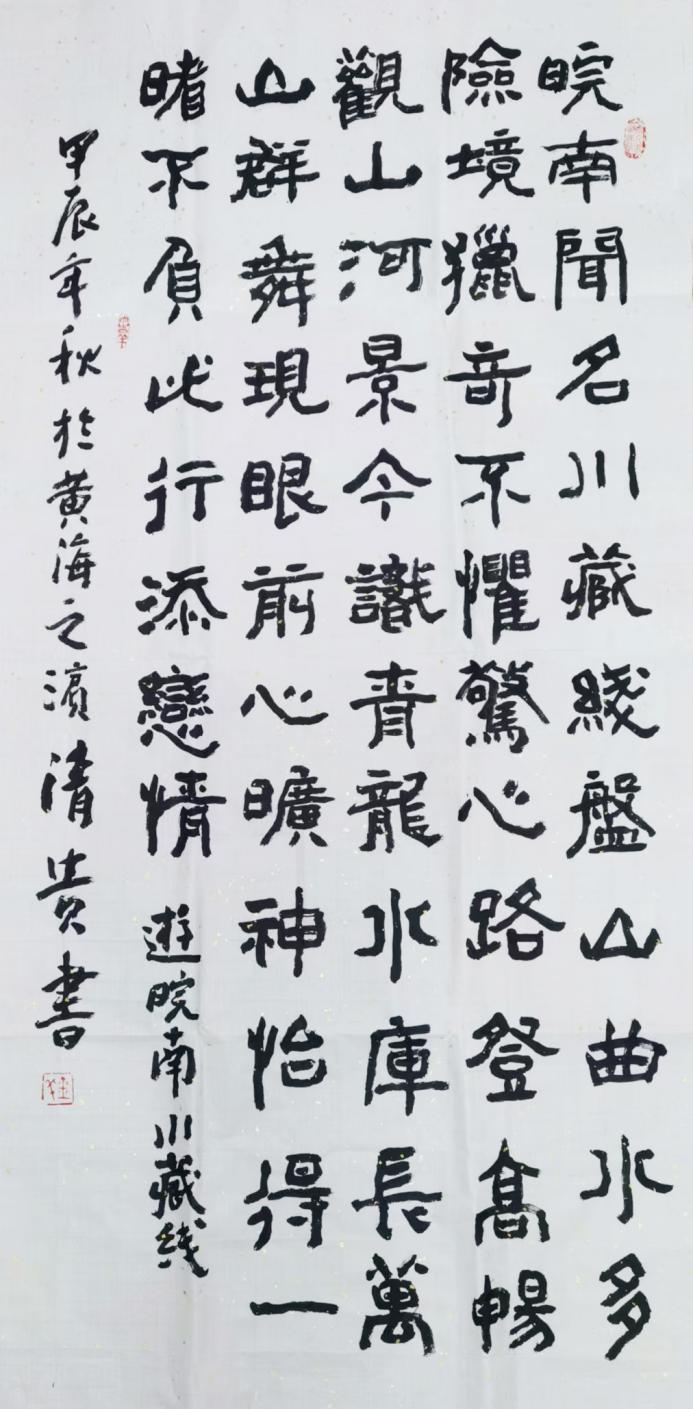 皖南聞名川藏綫盤山曲水多
險境獵奇不懼驚心路登高暢
觀山河景今識青龍水庫長萬
山群舞現眼前心曠神怡得一
睹不負此行添戀情 遊皖南川藏线
甲辰年秋於黄海之濱清贵書